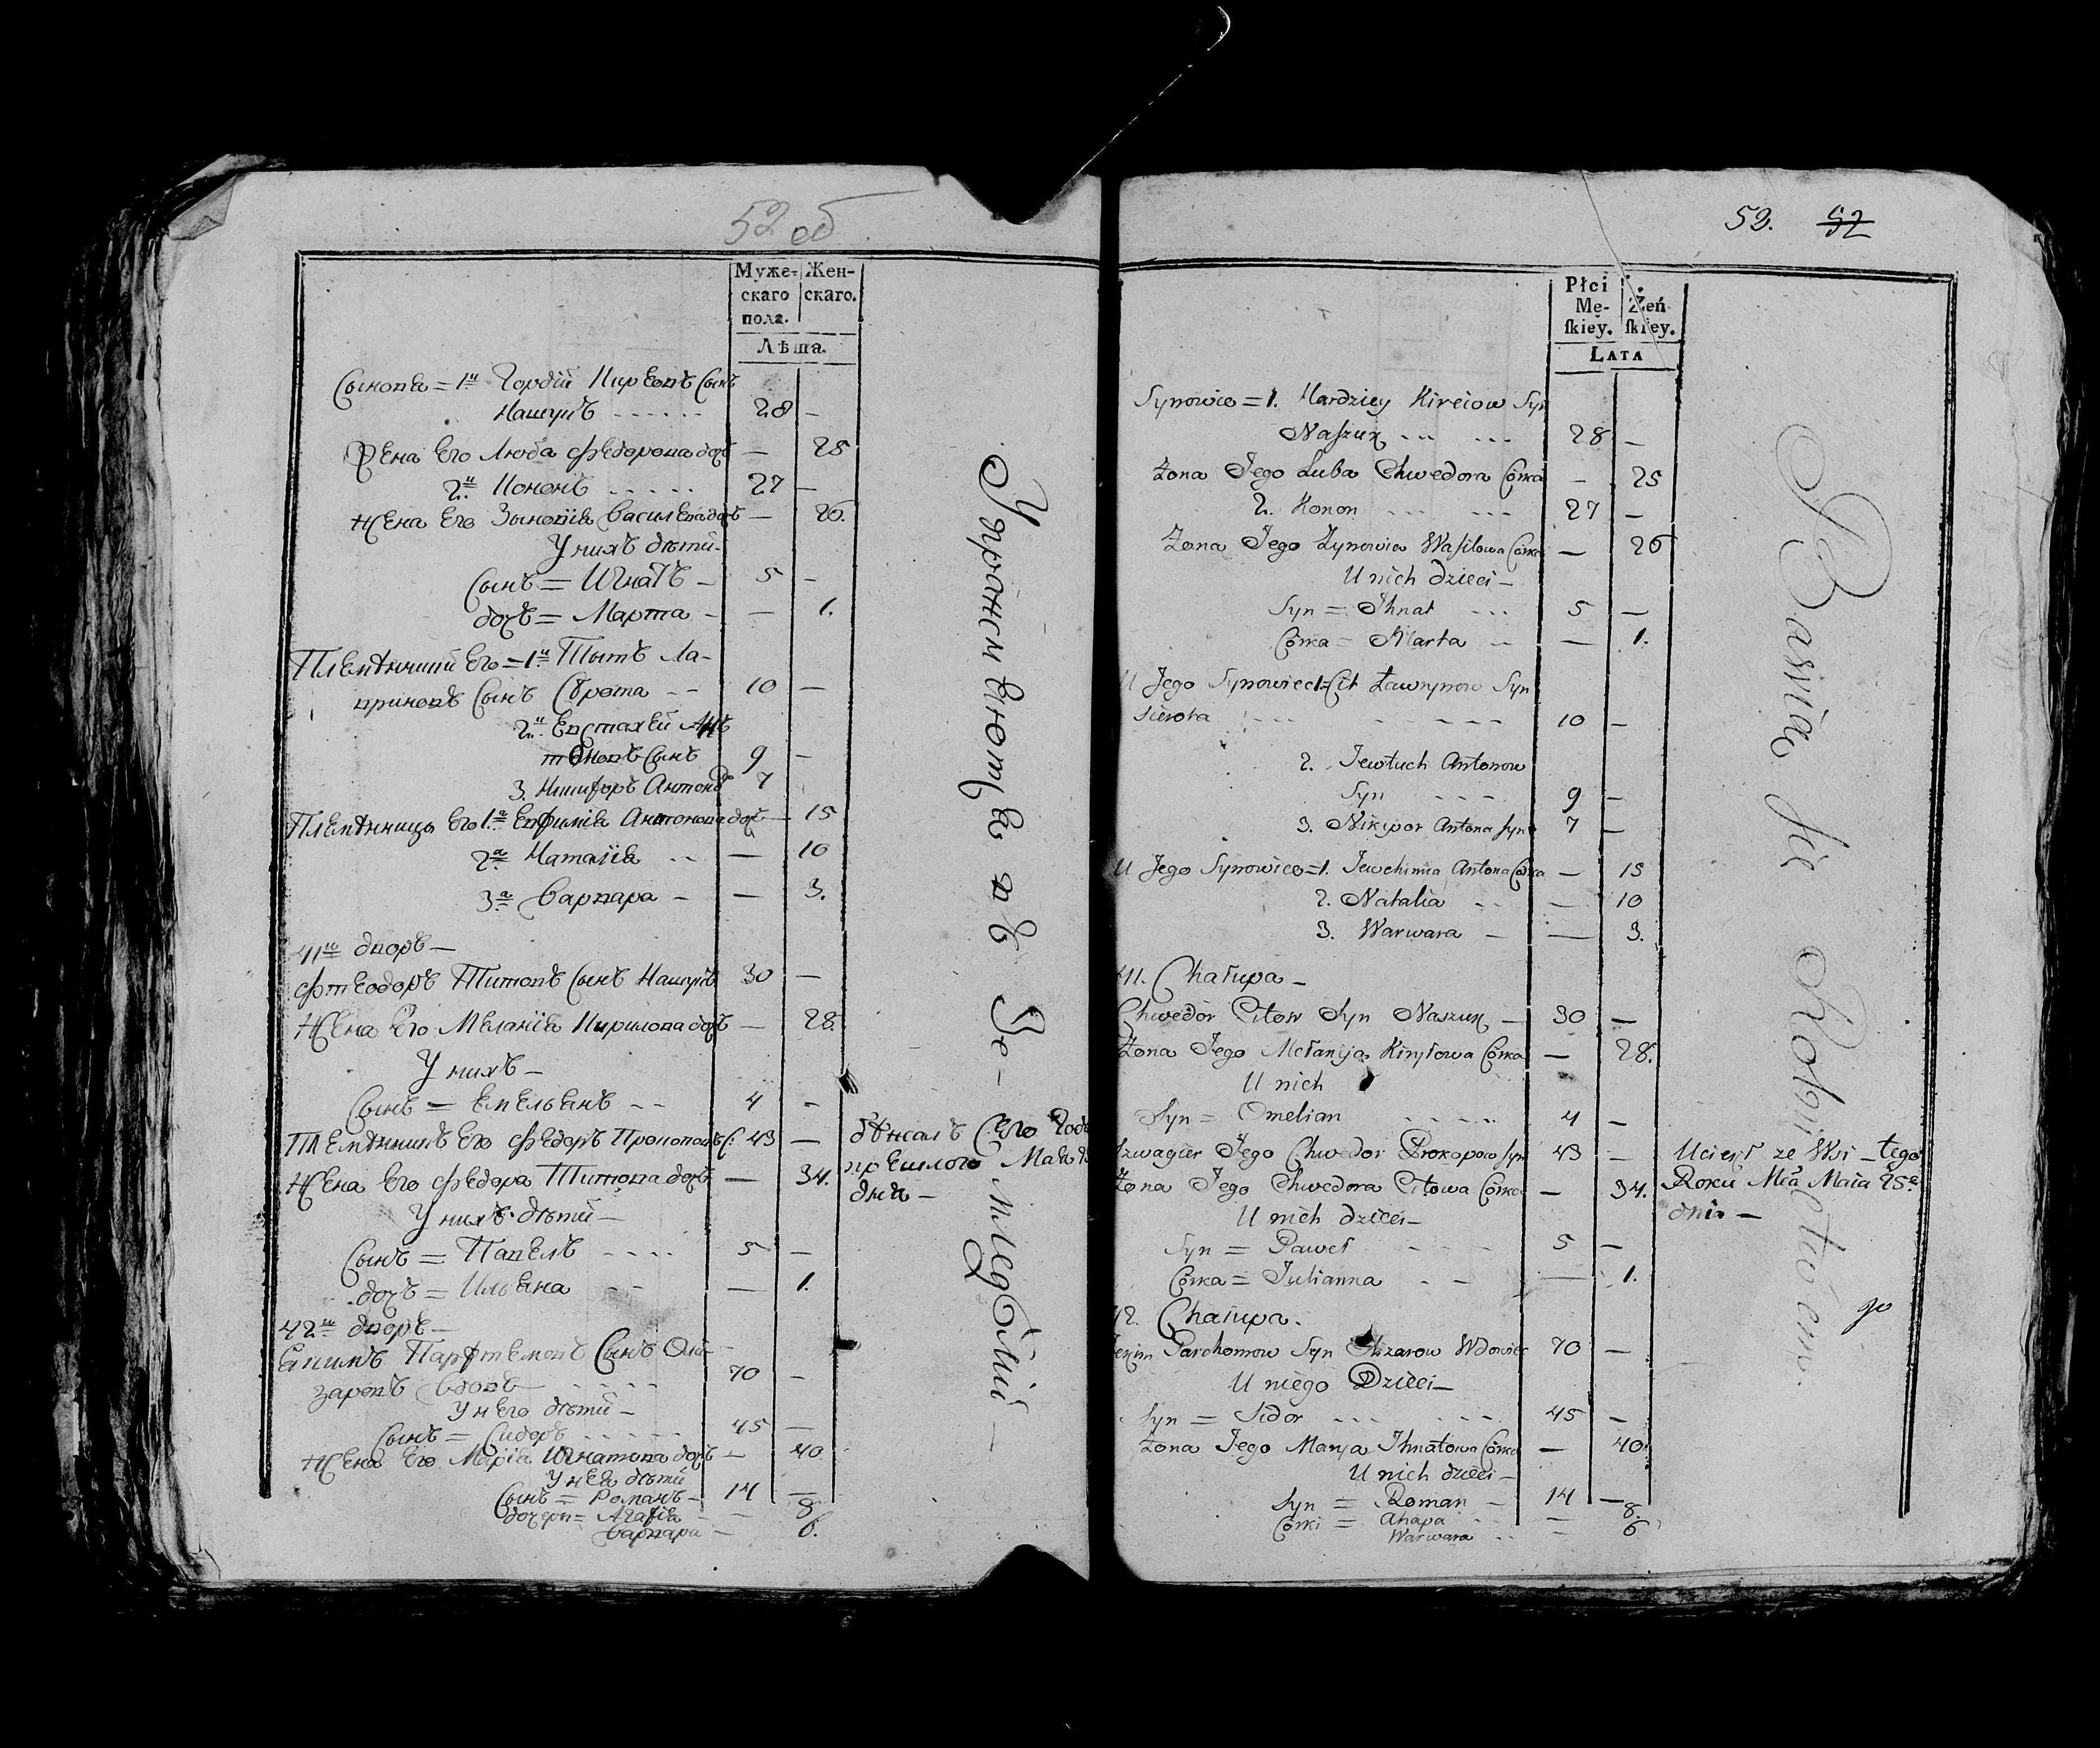 52 об
Муже-
скаго
пола.
Жен-
скаго.
Лѣта.
Сыновя = 1й Гордій Кирѣевъ Сынъ
Нашукъ - - - - - - 28 —
Жена Его Люба Федорова дочъ — 25
2й Кононъ - - - - - 27 —
Жена Его Зѣновія Васильева дочъ — 26.
У нихъ дѣти —
Сынъ = Игнатъ — 5 —
дочъ = Марта — — 1.
Племянники Его = 1й Тытъ Ла-
вриновъ Сынъ Сирота - - 10 —
2й Евстахей Ан-
тоновъ Сынъ 9 —
3. Никифоръ Антоно 7
Племянницы Его 1я Евфимія Антонова дочъ — 15
2я Наталія - - — 10
3я Варвара — — 3.
41й дворъ —
Фтеодоръ Титовъ Сынъ Нашукъ 30 —
Жена Его Меланія Кирилова дочъ — 28.
У нихъ —
Сынъ = Емельянъ - - 4 —
Племянникъ Его Федоръ Прокоповъ С: 43 —
Жена Его Федора Титова дочъ — 34.
У нихъ дѣти —
Сынъ = Павелъ - - - - 5 —
дочъ = Ильяна - - — 1.
42й дворъ —
Екимъ Парфтемовъ Сынъ Оли-
заровъ Вдовъ - - - - 70 —
У него дѣти —
Сынъ = Сидоръ - - - - - 45 —
Жена Его Марія Игнатова дочъ — 40.
У нея дѣти
Сынъ = Романъ — 14 —
дочери = Агафія - - — 8
Варвара — 6.
бѣжалъ Сего Года
Мая
дня —
Упражняютца въ Земледѣліи —
53. 52
Płci
Mę-
skiey.
Żeń-
skiey.
LATA
Synowie = 1. Hardziey Kireiow Syn
Naszuk - - - - - 28 —
Żona Jego Luba Chwedora Córka — 25
2. Konon - - - - - - 27 —
Żona Jego Zynowia Wasilowa Córka — 26
U nich dzieci —
Syn = Ihnat - - - 5 —
Córka = Marta - - — 1.
U Jego Synowiec 1. Cit Ławrynow Syn
Sierota - - - - - - - - 10 —
2. Jewtuch Antonow
Syn - - - - 9 —
3. Nikipor Antona Syn 7 —
U Jego Synowice = 1. Jewchimia Antona Córka — 15
2. Natalia - - — 10
3. Warwara — — 3.
41. Chałupa —
Chwedor Citow Syn Naszuk — 30 —
Żona Jego Mełanija Kiryłowa Córka — 28.
U nich
Syn = Omelian - - - - - 4 —
Szwagier Jego Chwedor Prokopow Syn 43 —
Żona Jego Chwedora Citowa Córka — 34.
U nich dzieci —
Syn = Paweł - - - - 5 —
Córka = Julianna - - — 1.
42. Chałupa.
Jekim Parchomow Syn Alizarow Wdowiec 70 —
U niego Dzieci —
Syn = Sidor - - - - - - 45 —
Żona Jego Marya Ihnatowa Córka — 40.
U nich dzieci —
Syn = Roman — 14 —
Córki = Ahapa - - — 8.
Warwara - - — 6
Uciekł ze Wsi — tego
Roku Mca Maia 25o
dnia —
Bawią się Rolnictwem.